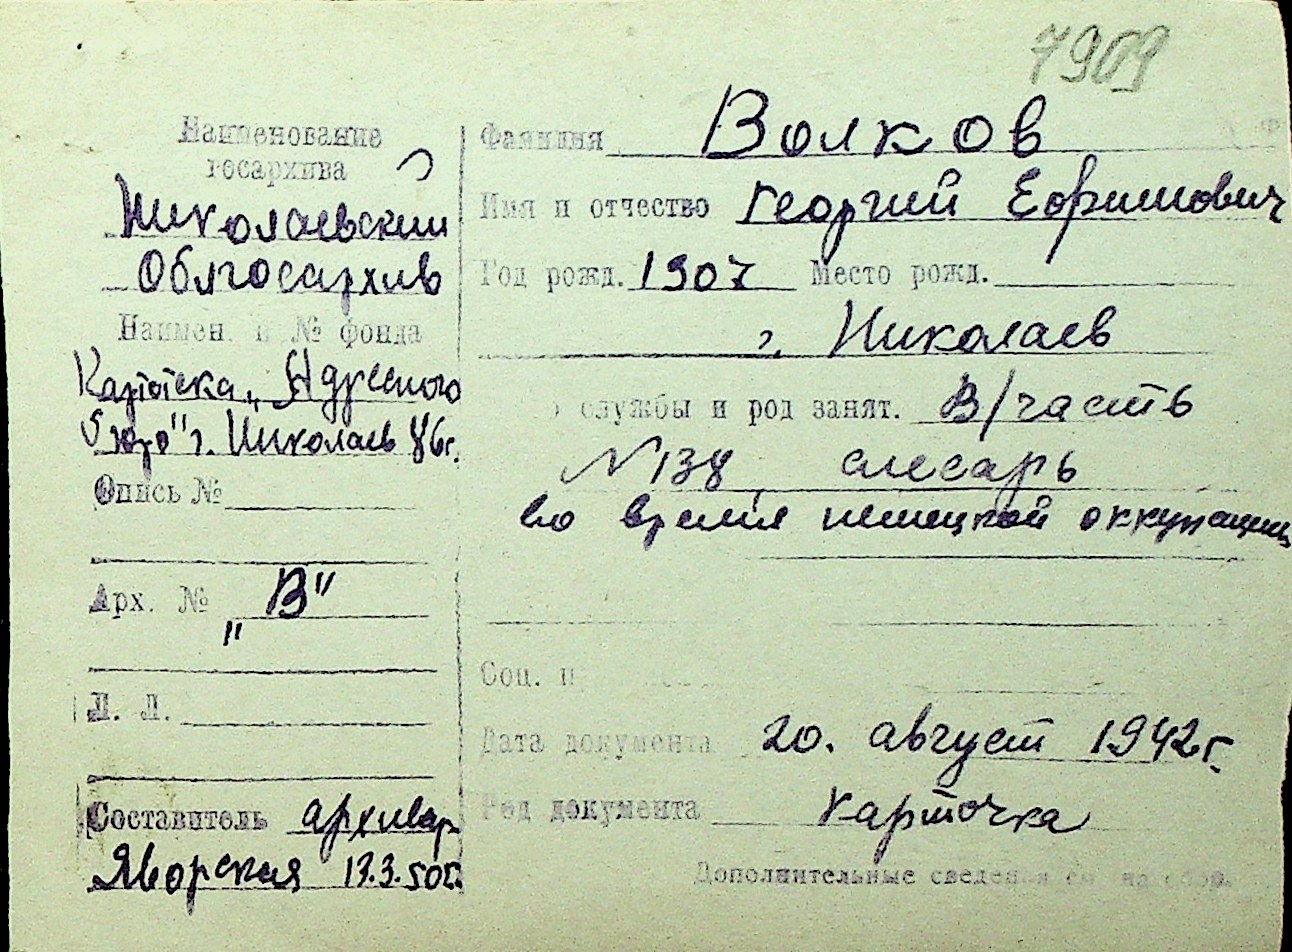 7909
Наименование
госархива
Николаевский
Облгосархив
Наимен. и № фонда
Картотека „Адресного
бюро" г. Николаев
Опись №
Арх. № „В"
Л. Л.
Составитель архивар
Яворская 17.3.50г.
Фамилия Волков
Имя и отчество Георгий Ефимович
Год рожд. 1907 Место рожд.
г. Николаев
службы и род занят. В/часть
N138, слесарь
во время немецкой оккупации
Соц. п
Дата документа 20. август 1942г.
Род документа карточка
Дополнительные сведения см на обор.